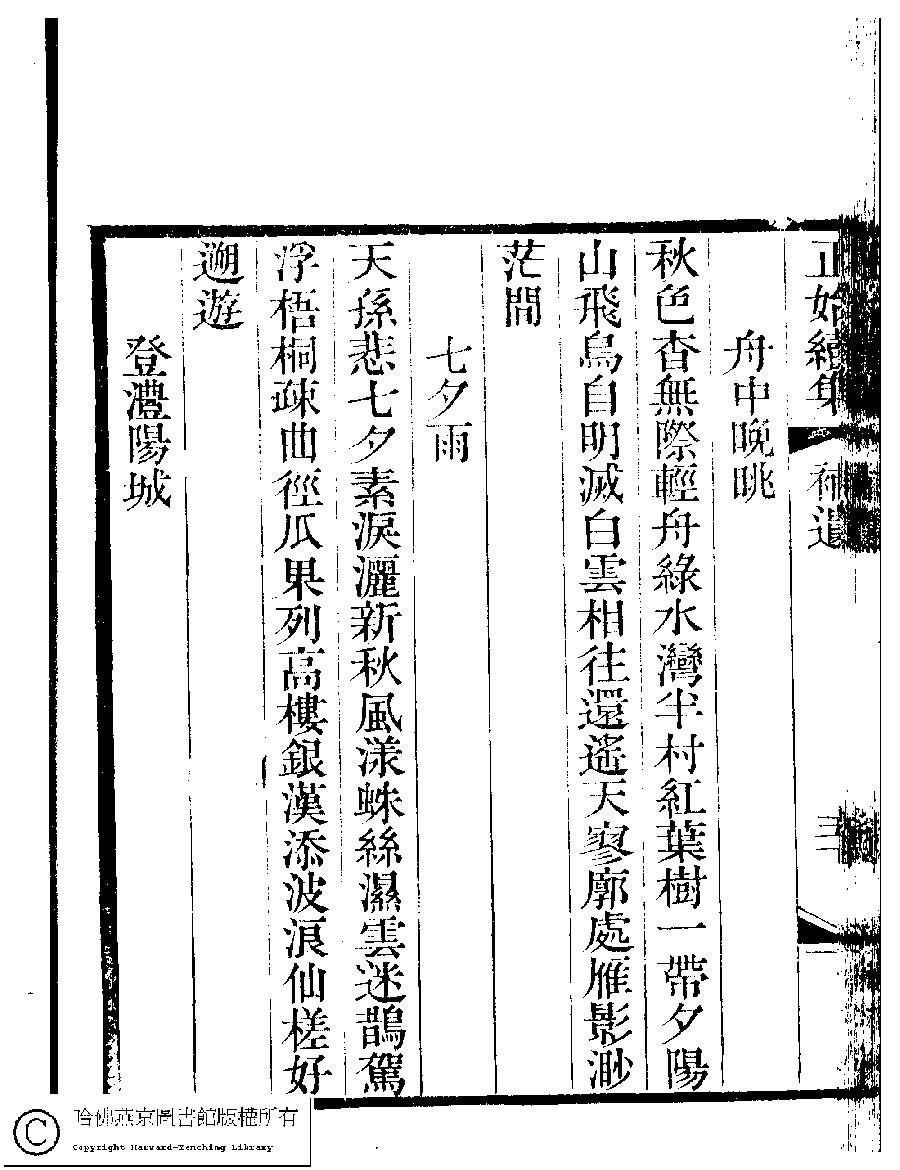 正始續集 補遺 三
舟中晚眺
秋色杳無際輕舟綠水灣半村紅葉樹一帶夕陽
山飛鳥自明滅白雲相往還遙天寥廓處雁影渺
茫間
七夕雨
天孫悲七夕素淚灑新秋風漾蛛絲濕雲迷鵲駕
浮梧桐疎曲徑瓜果列高樓銀漢添波浪仙槎好
遡遊
登澧陽城
哈佛燕京圖書館版權所有
Copyright Harvard-Yenching Library